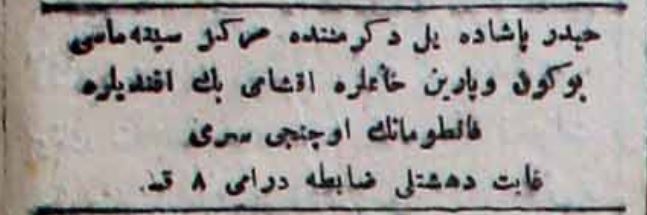 حیدر پاشاده یل دكرمننده مركز سینه‌ماسی
بوكون ویارین خانملره اقشامی بك افندیلره
فانطومانك اوچنجی سری
غایت دهشتلی ضابطه درامی ۸ قسم.